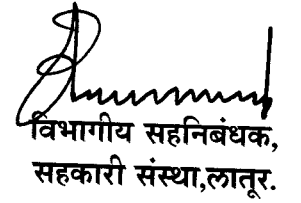 विभागीय सहनिबंधक,
सहकारी संस्था,लातूर.